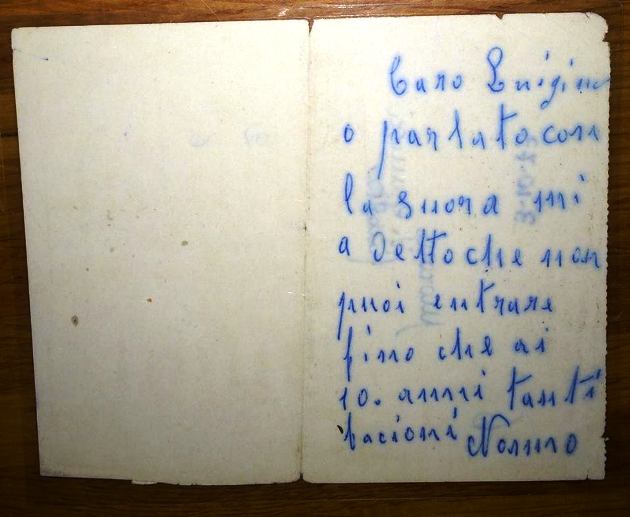 Caro Luigino
o parlato con
la suora mi
a detto che non
puoi entrare
fino che ai
10. anni tanti
bacioni Nonno